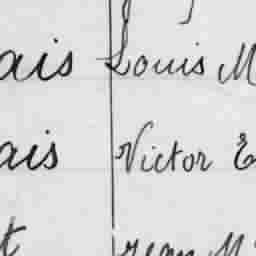 ais Louis M
ais Victor E
t Jean M